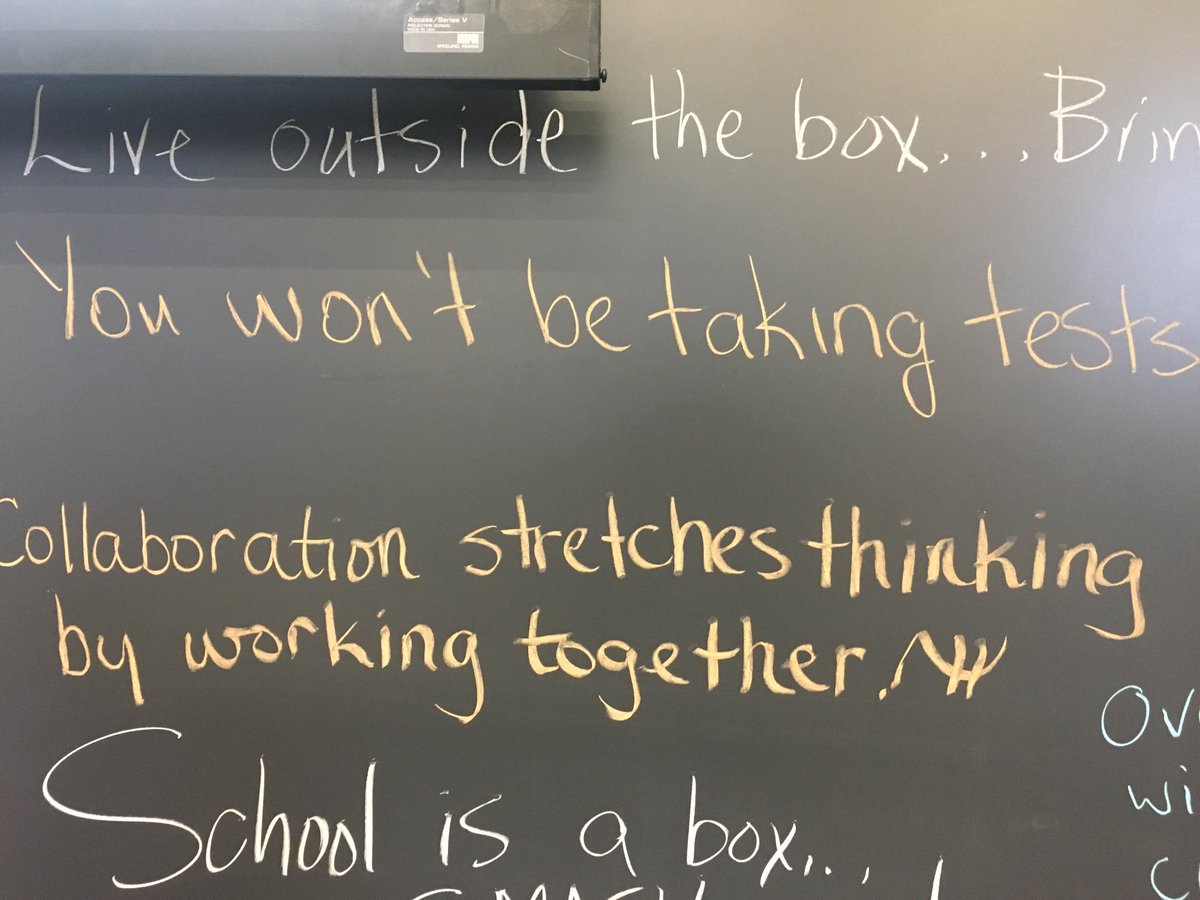 Access/Series V
PROJECTION SCREEN
MADE IN USA
SPICELAND, INDIANA
Live outside the box...Brin
You won't be taking tests
Collaboration stretches thinking
by working together.
School is a box...
Ov
wi